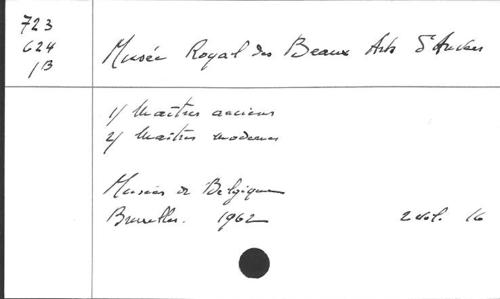 723
624
1B
Musée Royal des Beaux Arts d'Anvers
1/ Maîtres anciens
2/ Maîtres modernes
Musées de Belgique
Bruxelles. 1962 2 vol. 16